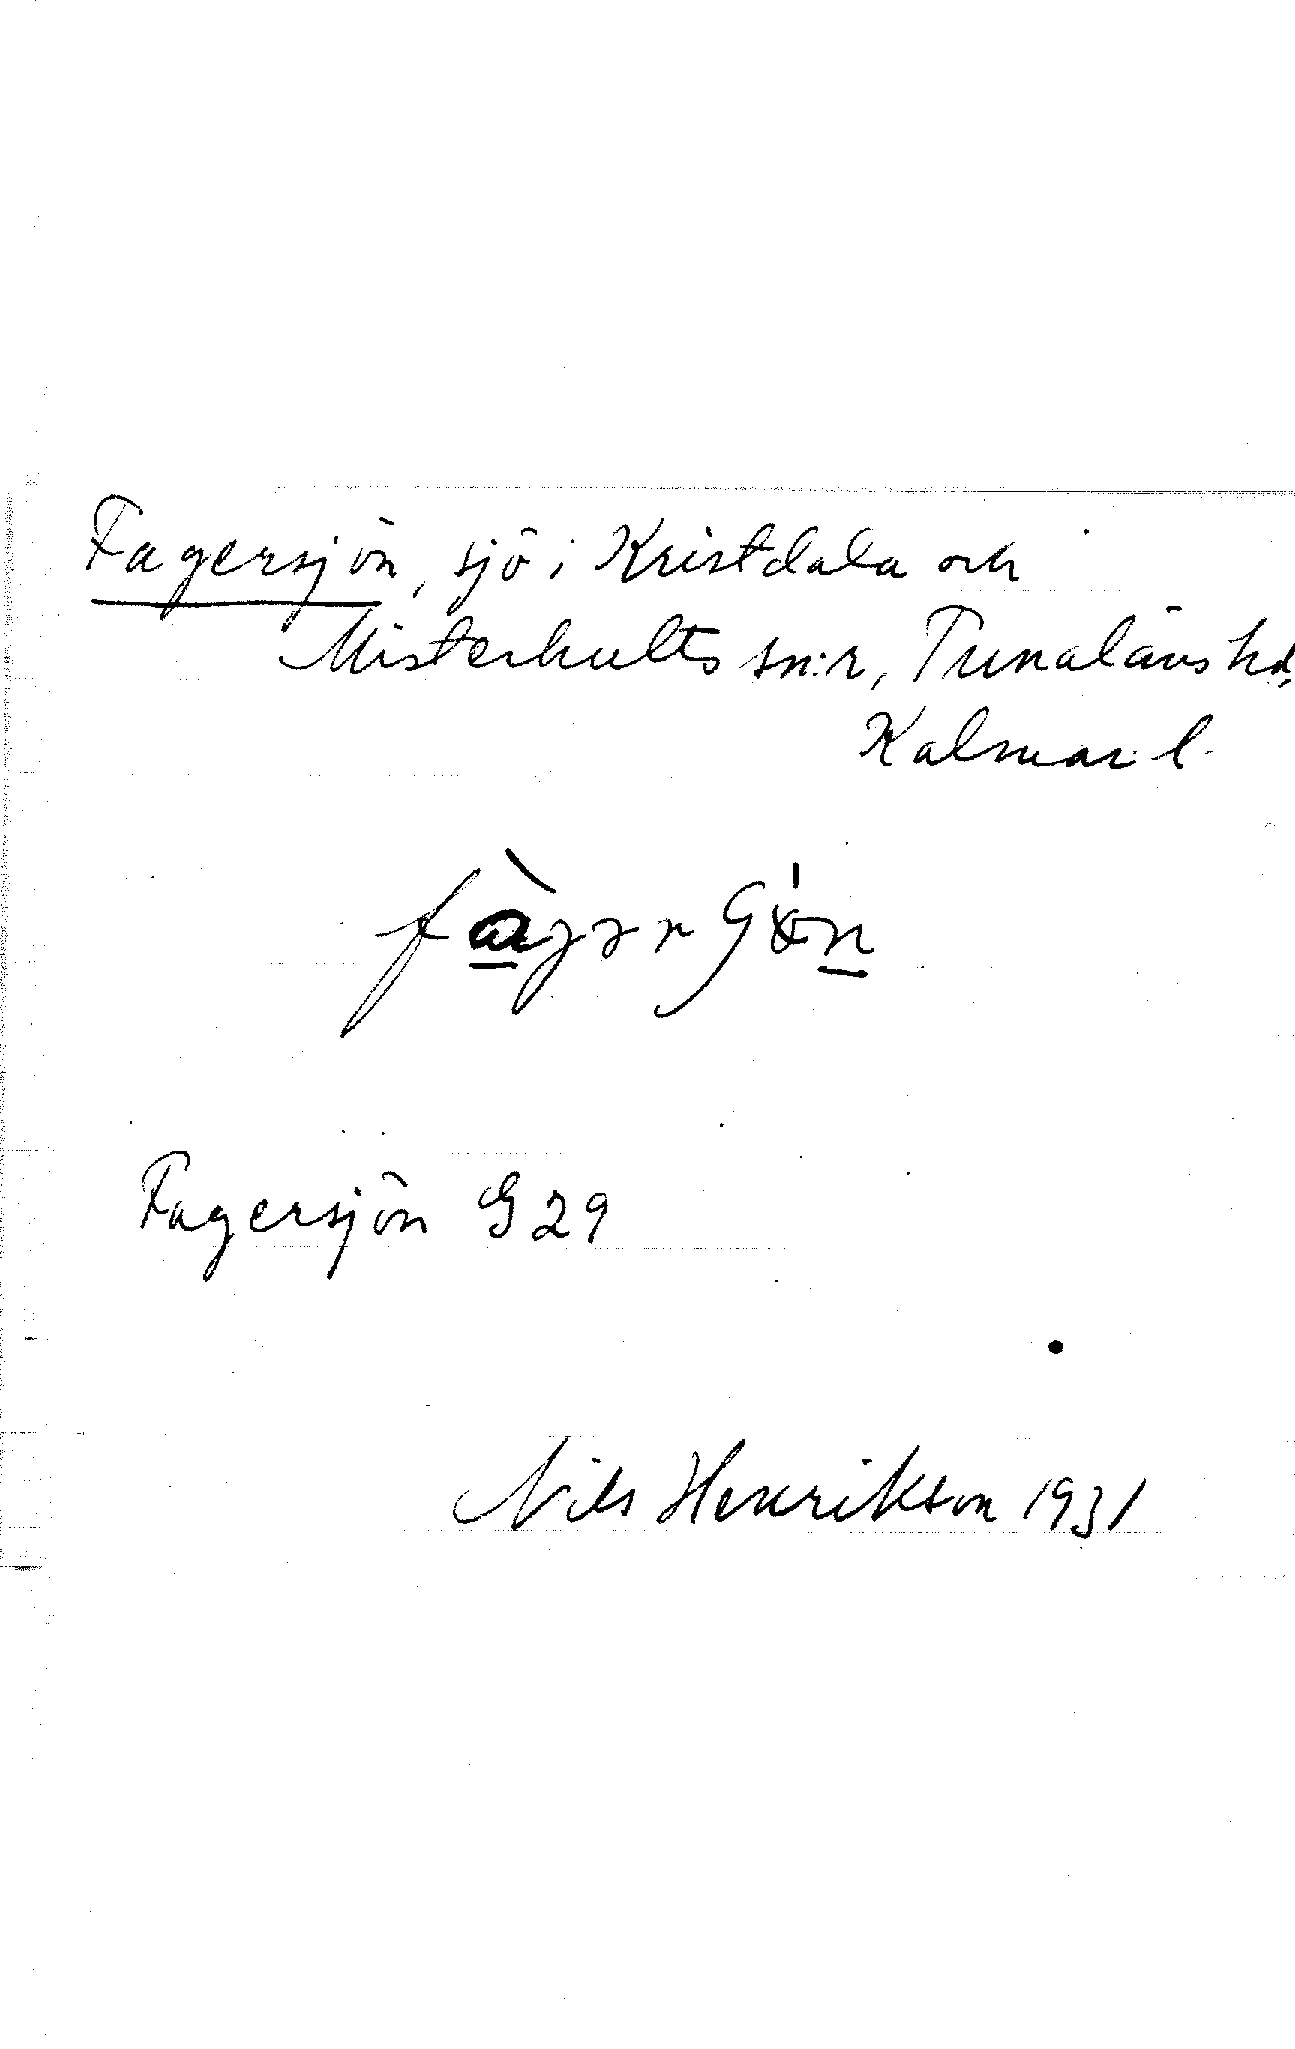 Fagersjön, sjö i Kristdala och
Misterhults sn:r, Tunaläns hd,
Kalmar l.
Fagersjön G 29
Nils Henrikson 1931